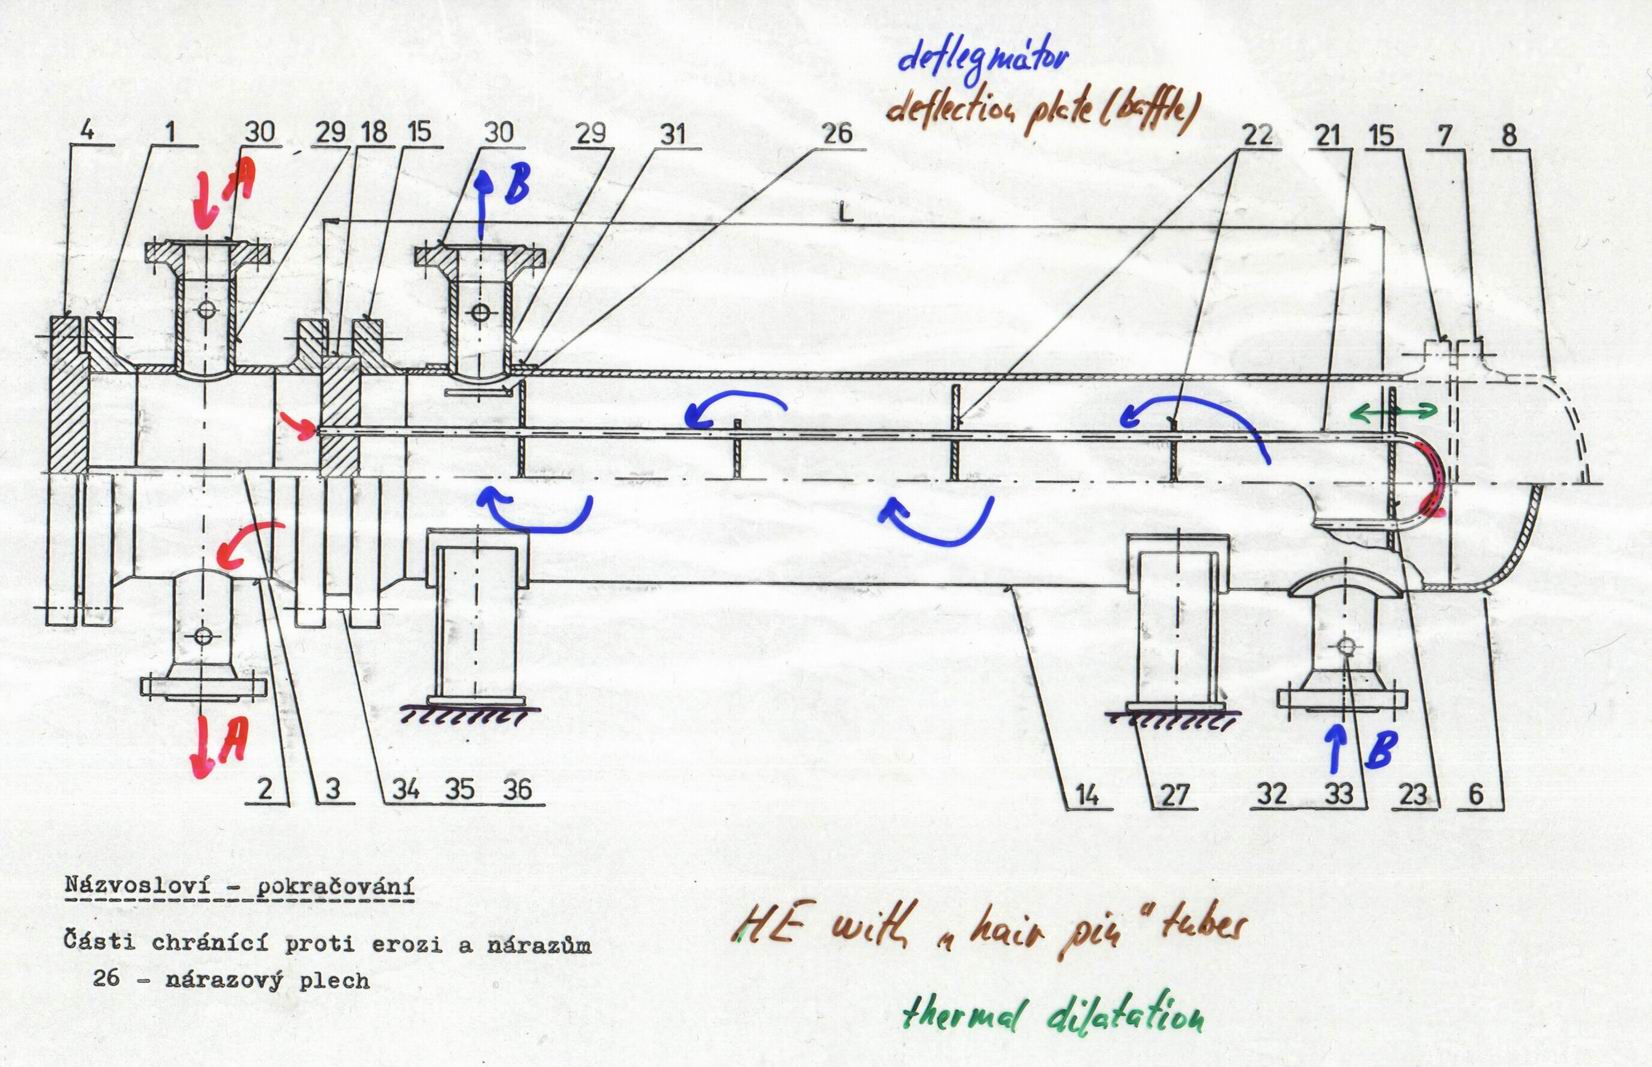 deflegmátor
deflection plate (baffle)
4 1 30 29 18 15 30 29 31 26 22 21 15 7 8
A B
L
A B
2 3 34 35 36 14 27 32 33 23 6
Názvosloví - pokračování
Části chránící proti erozi a nárazům
26 - nárazový plech
HE with „hair pin" tubes
thermal dilatation